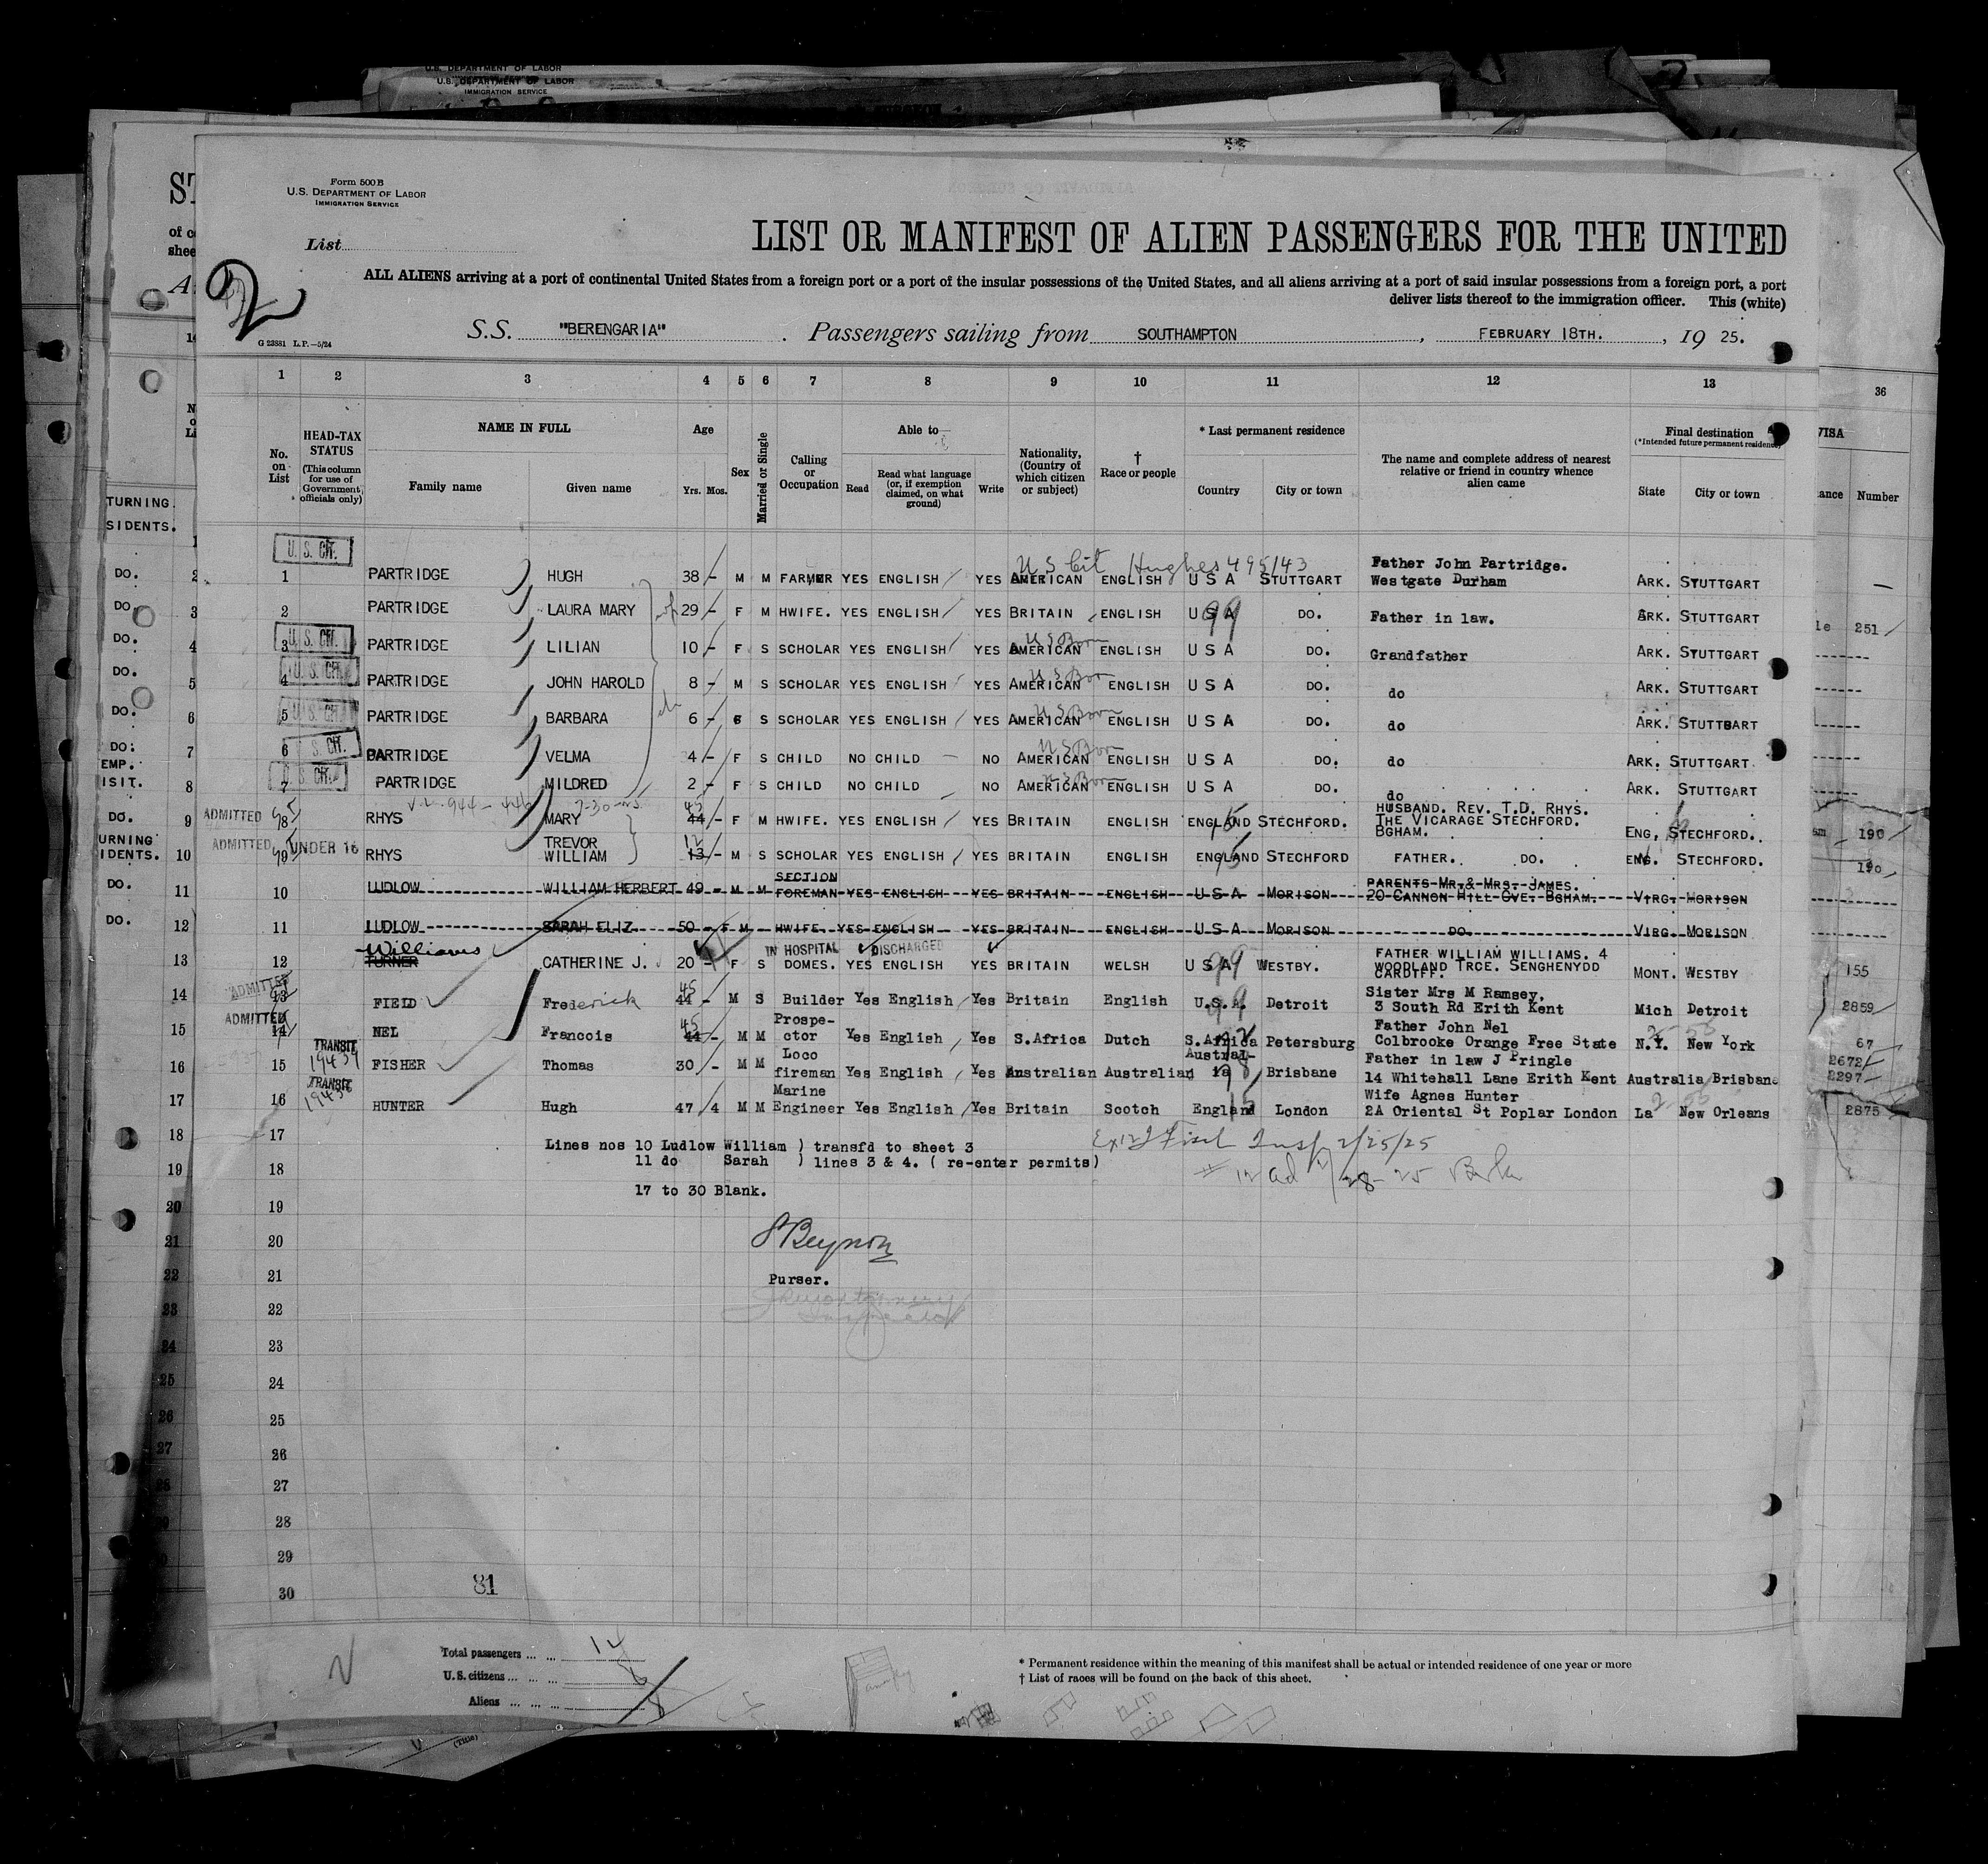 U.S. DEPARTMENT OF LABOR
U.S. DEPARTMENT OF LABOR
IMMIGRATION SERVICE
Form 500 B
U.S. DEPARTMENT OF LABOR
IMMIGRATION SERVICE
List
LIST OR MANIFEST OF ALIEN PASSENGERS FOR THE UNITED
ALL ALIENS arriving at a port of continental United States from a foreign port or a port of the insular possessions of the United States, and all aliens arriving at a port of said insular possessions from a foreign port, a port
deliver lists thereof to the immigration officer. This (white)
2
S.S. "BERENGARIA" . Passengers sailing from SOUTHAMPTON , FEBRUARY 18TH. , 19 25.
G 23881 L.P.—5/24
1 2 3 4 5 6 7 8 9 10 11 12 13 36
No. on List
HEAD-TAX STATUS (This column for use of Government officials only)
NAME IN FULL
Family name Given name
Age
Yrs. Mos.
Sex
Married or Single
Calling or Occupation
Able to
Read Read what language (or, if exemption claimed, on what ground) Write
Nationality, (Country of which citizen or subject)
† Race or people
* Last permanent residence
Country City or town
The name and complete address of nearest relative or friend in country whence alien came
Final destination
(*Intended future permanent residence)
State City or town
VISA
Number
U.S. CIT. U S Cit Hughes 495143
1 PARTRIDGE HUGH 38 - M M FARMER YES ENGLISH YES AMERICAN ENGLISH U S A STUTTGART Father John Partridge. Westgate Durham ARK. STUTTGART
2 PARTRIDGE LAURA MARY 29 - F M HWIFE. YES ENGLISH YES BRITAIN ENGLISH U S A 99 DO. Father in law. ARK. STUTTGART
U.S. CIT. 3 PARTRIDGE LILIAN 10 - F S SCHOLAR YES ENGLISH YES AMERICAN U S Born ENGLISH U S A DO. Grandfather ARK. STUTTGART 251
U.S. CIT. 4 PARTRIDGE JOHN HAROLD 8 - M S SCHOLAR YES ENGLISH YES AMERICAN U S Born ENGLISH U S A DO. do ARK. STUTTGART
U.S. CIT. 5 PARTRIDGE BARBARA 6 - S SCHOLAR YES ENGLISH YES AMERICAN U S Born ENGLISH U S A DO. do ARK. STUTTGART
U.S. CIT. 6 PARTRIDGE VELMA 4 - F S CHILD NO CHILD — NO AMERICAN U S Born ENGLISH U S A DO. do ARK. STUTTGART
U.S. CIT. 7 PARTRIDGE MILDRED 2 - F S CHILD NO CHILD NO AMERICAN U S Born ENGLISH U S A DO. do ARK. STUTTGART
ADMITTED 8 RHYS MARY 45 44 - F M HWIFE. YES ENGLISH YES BRITAIN ENGLISH ENGLAND 15 STECHFORD. HUSBAND. REV. T.D. RHYS. THE VICARAGE STECHFORD. BGHAM. ENG, STECHFORD. 190
ADMITTED 9 UNDER 16 RHYS TREVOR WILLIAM 12 13 - M S SCHOLAR YES ENGLISH YES BRITAIN ENGLISH ENGLAND 15 STECHFORD FATHER. DO. ENG. STECHFORD. 190
10 LUDLOW WILLIAM HERBERT 49 - M M SECTION FOREMAN YES ENGLISH YES BRITAIN ENGLISH U S A MORISON PARENTS MR.& MRS. JAMES. 20 CANNON HILL GVE. BGHAM. VIRG. MORISON
11 LUDLOW SARAH ELIZ 50 - F M HWIFE. YES ENGLISH YES BRITAIN ENGLISH U S A MORISON DO. VIRG. MORISON
IN HOSPITAL DISCHARGED
12 Williams TURNER CATHERINE J. 20 - F S DOMES. YES ENGLISH YES BRITAIN WELSH U S A 99 WESTBY. FATHER WILLIAM WILLIAMS. 4 WOODLAND TRCE. SENGHENYDD CARDIFF. MONT. WESTBY 155
ADMITTED 13 FIELD Frederick 45 44 - M S Builder Yes English Yes Britain English U.S.A. 99 Detroit Sister Mrs M Ramsey, 3 South Rd Erith Kent Mich Detroit 2859
ADMITTED 14 NEL Francois 45 44 - M M Prospe-ctor Yes English Yes S.Africa Dutch S.Africa Petersburg Father John Nel Colbrooke Orange Free State N.Y. New York 67
TRANSIT 19437 15 FISHER Thomas 30 - M M Loco fireman Yes English Yes Australian Australian Austral-ia Brisbane Father in law J Pringle 14 Whitehall Lane Erith Kent Australia Brisbane 2672 2297
TRANSIT 19438 16 HUNTER Hugh 47 4 M M Marine Engineer Yes English Yes Britain Scotch England 15 London Wife Agnes Hunter 2A Oriental St Poplar London La New Orleans 2875
17 Lines nos 10 Ludlow William ) transfd to sheet 3
18 11 do Sarah ) lines 3 & 4. ( re-enter permits)
2/25/25
17 to 30 Blank.
19
20
Purser.
21
22
23
24
25
26
27
28
29
30
81
Total passengers ... ... 14
U.S. citizens ... ... ... 6
Aliens ... ... ... 8
* Permanent residence within the meaning of this manifest shall be actual or intended residence of one year or more
† List of races will be found on the back of this sheet.
(Title)